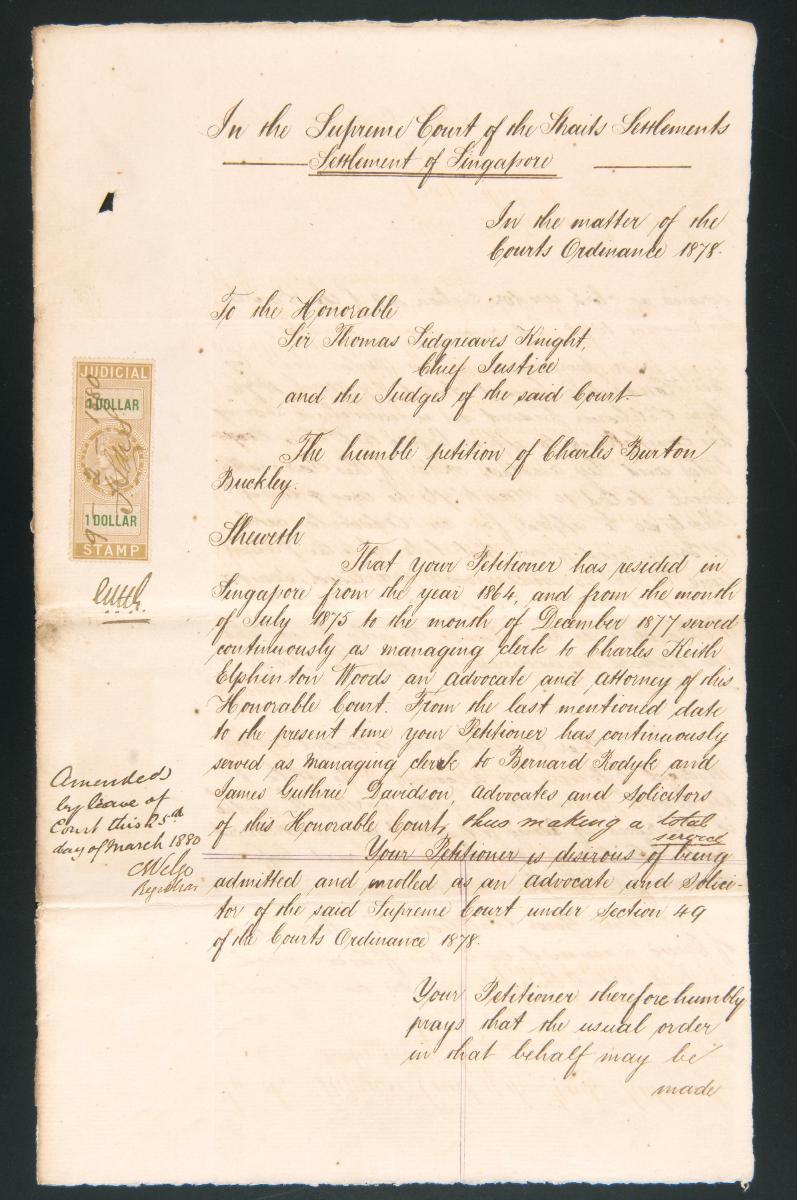 In the Supreme Court of the Straits Settlements
Settlement of Singapore
In the matter of the
Courts Ordinance 1878.
To the Honorable
Sir Thomas Sidgreaves Knight,
Chief Justice
and the Judges of the said Court.
The humble petition of Charles Burton
Buckley.
Sheweth
That your Petitioner has resided in
Singapore from the year 1864, and from the month
of July 1875 to the month of December 1877 served
continuously as managing clerk to Charles Keith
Elphinton Woods an advocate and attorney of this
Honorable Court. From the last mentioned date
to the present time your Petitioner has continuously
served as managing clerk to Bernard Rodyk and
James Guthrie Davidson, advocates and solicitors
of this Honorable Court, thus making a total
service
Your Petitioner is desirous of being
admitted and enrolled as an advocate and Solici-
tor of the said Supreme Court under Section 49
of the Courts Ordinance 1878.
Your Petitioner therefore humbly
prays that the usual order
in that behalf may be
made
JUDICIAL
1 DOLLAR
1880
1 DOLLAR
STAMP
Amended
by leave of
Court this 25th
day of March 1880